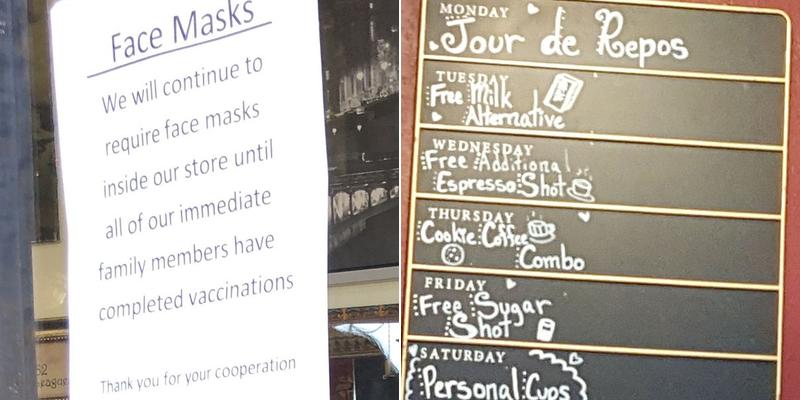 Face Masks
We will continue to
require face masks
inside our store until
all of our immediate
family members have
completed vaccinations
Thank you for your cooperation
MONDAY
Jour de Repos
TUESDAY
Free Milk
Alternative
WEDNESDAY
Free Additional
Espresso Shot
THURSDAY
Cookie Coffee
Combo
FRIDAY
Free Sugar
Shot
SATURDAY
Personal Cups